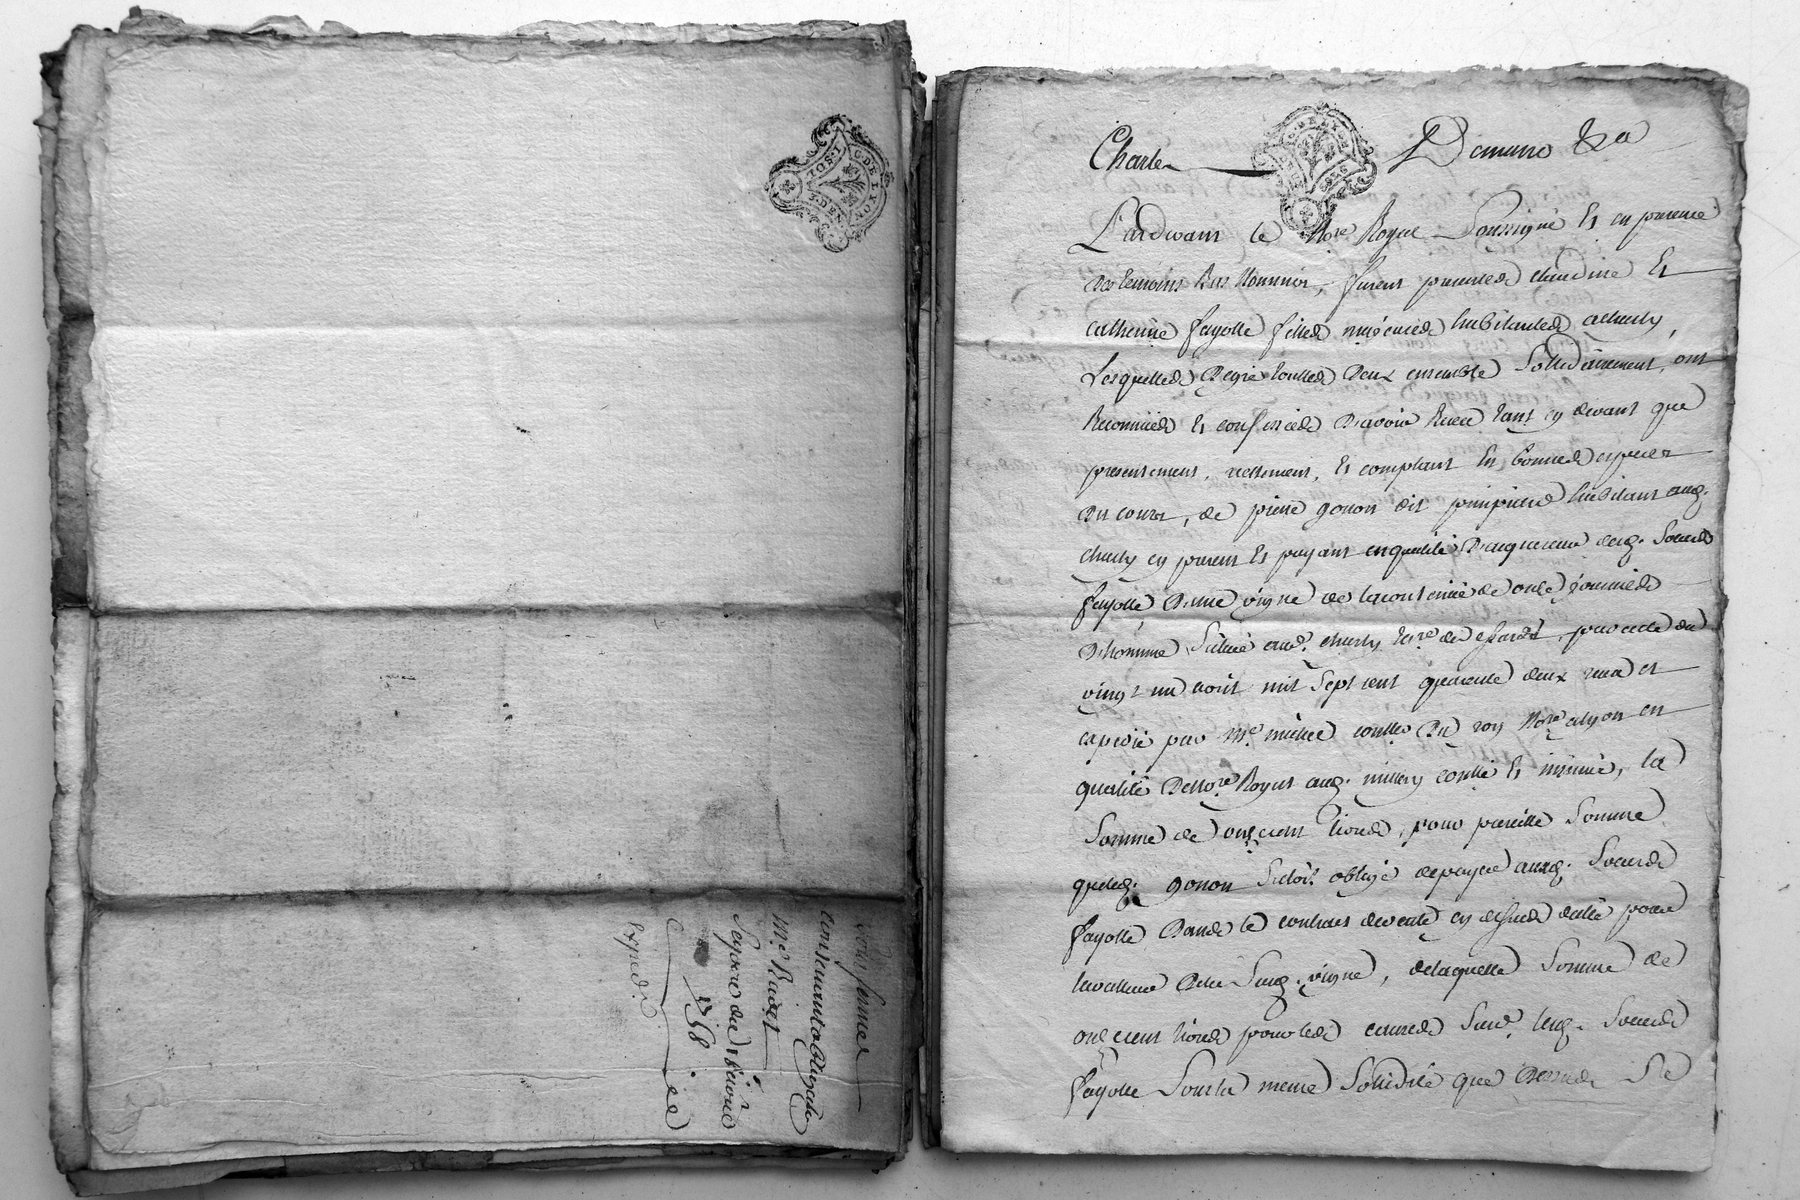 1·SOL
3·DEN
G·DE LYON
Sous ferme
Me Rivet
1758
Expedié
Charle
Pardevant le Nore Royal Soussigné Et en presence
des temoins bas Nommés, furent presentes claudine Et
catherine fayolle filles majeures habitantes a charly,
Lesquelles De gré touttes Deux ensemble Sollidairement, ont
Reconnües Et confessées D'avoir Receu tant cy devant que
presentement, réellement, Et comptant En bonnes especes
du cours, de pierre gonon dit pimpiere habitant aud.
charly cy present Et payant en qualité D'acquereur desd. Soeurs
fayolle D'une vigne de la contenüe de onze journées
D'homme Située aud. charly, terre de , par acte du
vingt un aout mil Sept cent quarente deux receu et
expedié par Me du roy Nore a lyon en
qualité De Nore Royal aud. millery Et , la
Somme de onze cent livres, pour pareille Somme
que led. gonon S'etoit obligé de payer auxd. Soeurs
fayolle Dans le contract de vente cy dessus datté pour
la valleur De la Susd. vigne, de laquelle Somme de
onze cent livres pour les causes Susd. lesd. Soeurs
fayolle Sous la meme Solidité que dessus Se